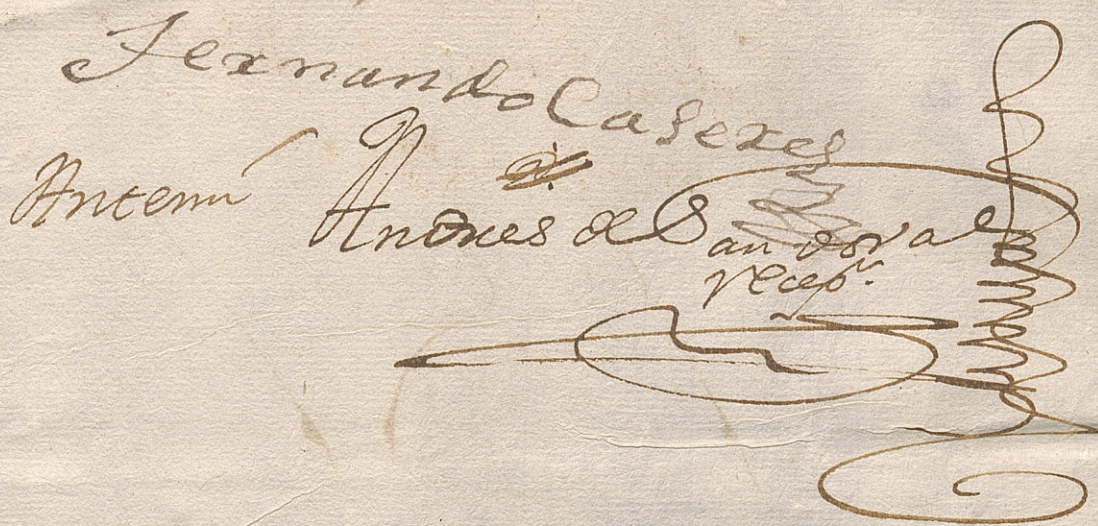 Fernando Caseres
Antemi Andres de Sandoval
recepr.